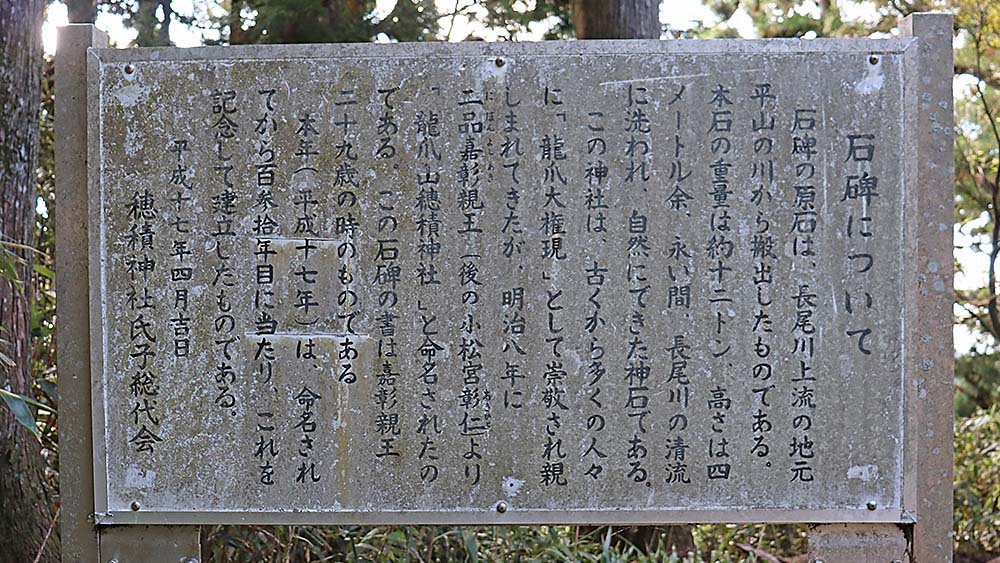 石碑について
石碑の原石は、長尾川上流の地元
平山の川から搬出したものである。
本石の重量は約十二トン、高さは四
メートル余、永い間、長尾川の清流
に洗われ、自然にできた神石である。
この神社は、古くから多くの人々
に「龍爪大権現」として崇敬され親
しまれてきたが、明治八年に
二品嘉彰親王(後の小松宮彰仁)より
「龍爪山穂積神社」と命名されたの
である。この石碑の書は嘉彰親王
二十九歳の時のものである
本年(平成十七年)は、命名され
てから百参拾年目に当たり、これを
記念して建立したものである。
平成十七年四月吉日
穂積神社氏子総代会